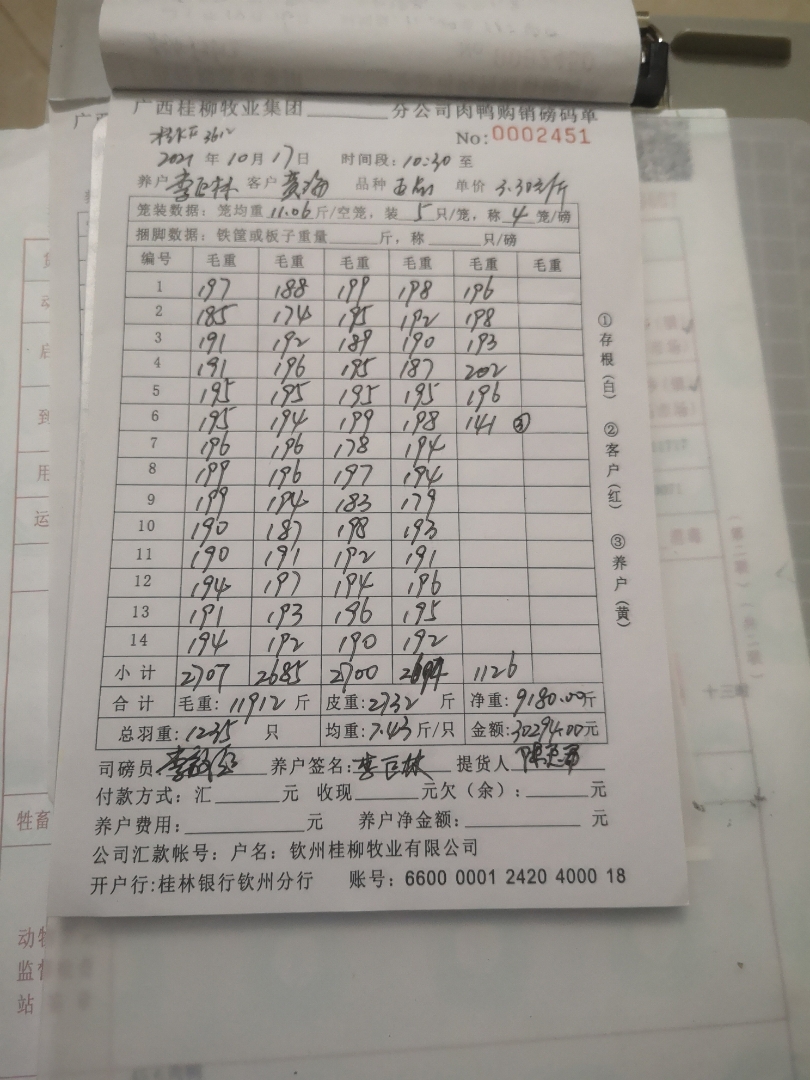 广西桂柳牧业集团______分公司肉鸭购销磅码单
No:0002451
2021年10月17日 时间段:10:30至
养户李巨林 客户黄海 品种 单价3.30元/斤
笼装数据:笼均重11.06斤/空笼,装5只/笼,称4笼/磅
捆脚数据:铁筐或板子重量______斤,称______只/磅
编号 毛重 毛重 毛重 毛重 毛重 毛重
1 197 188 199 198 196
2 185 174 195 192 198
3 191 192 189 190 193
4 191 196 195 187 202
5 195 195 195 195 196
6 195 194 199 198 141 ③
7 196 196 178 194
8 199 196 197 194
9 199 194 183 179
10 190 187 198 193
11 190 191 192 191
12 194 197 194 196
13 191 193 196 195
14 194 192 190 192
小计 2707 2685 2700 2694 1126
合计 毛重:11912斤 皮重:2732斤 净重:9180.00斤
总羽重:1235只 均重:7.43斤/只 金额:30294.00元
司磅员 养户签名:李巨林 提货人
付款方式:汇______元 收现______元欠(余):______元
养户费用:______元 养户净金额:______元
公司汇款帐号:户名:钦州桂柳牧业有限公司
开户行:桂林银行钦州分行 账号:6600 0001 2420 4000 18
①存根(白)
②客户(红)
③养户(黄)
广西
动
到
用
运
牲畜
动物
监督
站